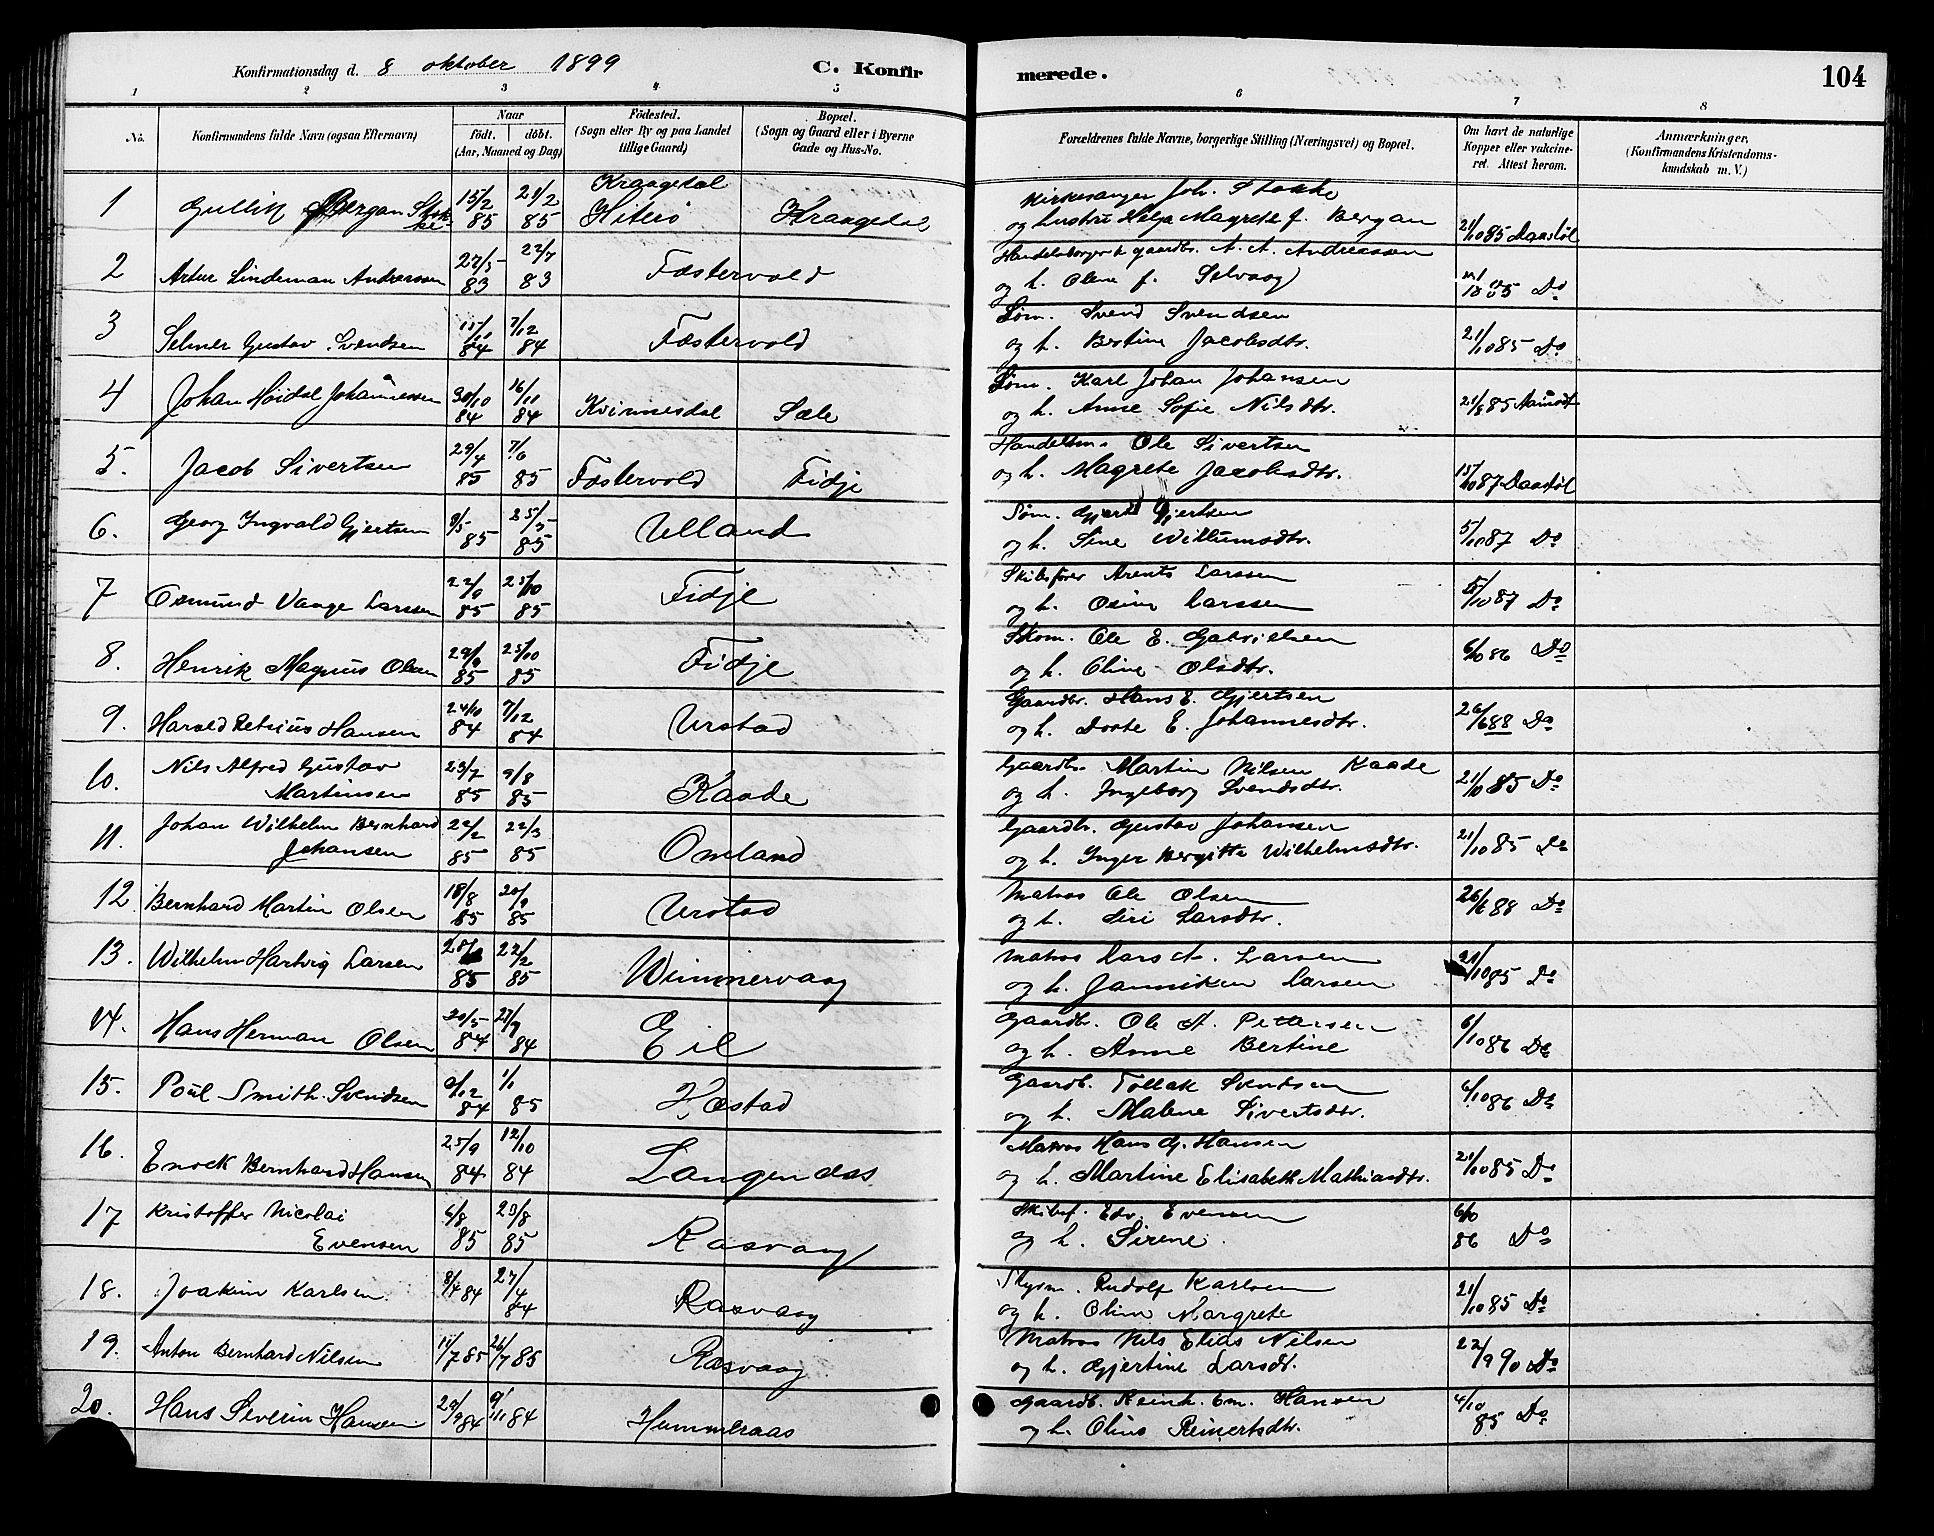 Konfirmationsdag d. 8 oktober 1899 C. Konfirmerede. 104
1 2 3 4 5 6 7 8
No. Konfirmandens fulde Navn (ogsaa Efternavn) Naar født. døbt. (Aar, Maaned og Dag) Fødested. (Sogn eller By og paa Landet tillige Gaard) Bopæl. (Sogn og Gaard eller i Byerne Gade og Hus-No. Forældrenes fulde Navne, borgerlige Stilling (Næringsvei) og Bopæl. Om havt de naturlige Kopper eller vakcineret. Attest herom. Anmærkninger, (Konfirmandens Kristendomskundskab m. V.)
1 Gullik Bergan Stokke 15/2 85 21/2 85 Kraagedal Hiterø Kraagedal Kirkesanger Joh. Stokke
og hustru Helga Magrete f. Bergan 21/10 85 Daastøl
2 Artur Lindeman Andreassen 27/5 83 22/7 83 Fæstervold Handelsborger & gaardbr. A. A. Andreassen
og h. Olene f. Selvaag Do
3 Selmer Gustav Svendsen 15/11 84 7/12 84 Fæstervold Søm. Svend Svendsen
og h. Bertine Jacobsdtr. 21/10 85 Do
4 Johan Høidal Johannessen 30/10 84 16/11 84 Kvinnesdal Sæle Søm. Karl Johan Johansen
og h. Anne Sofie Nilsdtr. 21/8 85 Aamodt
5. Jacob Sivertsen 29/4 85 7/6 85 Fæstervold Fidje Handelsm. Ole Sivertsen
og h. Magrete Jacobsdtr. 15/10 87 Daastøl
6. Georg Ingvald Gjertsen 9/5 85 25/5 85 Ulland Søm. Gjert Gjertsen
og h. Sine Willumsdtr. 5/10 87 Do
7 Osmund Vange Larssen 22/9 85 25/10 85 Fidje Skibsfører Arents Larssen
og h. Osine Larssen 5/10 87 Do
8. Henrik Magnus Olsen 29/9 85 25/10 85 Fidje Skom. Ole E. Gabrielsen
og h. Oline Olsdtr. 6/10 86 Do
9. Harald Petrius Hansen 24/10 84 7/12 84 Urstad Gaardbr. Hans E. Gjertsen
og h. Dorte E. Johannesdtr. 26/6 88 Do
10. Nils Alfred Gustav Martinsen 23/7 85 9/8 85 Kaade Gaardbr. Martin Nilsen Kaade
og h. Ingeborg Svendsdtr. 21/10 85 Do
11. Johan Wilhelm Bernhard Johansen 22/2 85 22/3 85 Omland Gaardbr. Gustav Johansen
og h. Inger Bergitte Wilhelmsdtr. 21/10 85 Do
12 Bernhard Martin Olsen 18/8 85 20/9 85 Urstad Matros Ole Olsen
og h. Siri Larsdtr. 26/6 88 Do
13. Wilhelm Hartvig Larsen 85 22/2 85 Wimmervaag Matros Lars A. Larsen
og h. Janniken Larsen 21/10 85 Do
14. Hans Herman Olsen 20/5 84 27/7 84 Eie Gaardbr. Ole A. Pettersen
og h. Anne Bertine 6/10 86 Do
15. Poul Smith Svendsen 9/12 84 1/1 85 Kæstad Gaardb. Tollak Svendsen
og h. Malene Sivertsdtr. 6/10 86 Do
16. Enock Bernhard Hansen 25/9 84 12/10 84 Langenæs Matros Hans G. Hansen
og h. Martine Elisabeth Mathiasdtr. 21/10 85 Do
17 Kristoffer Nicolai Evensen 6/8 85 23/8 85 Rasvaag Skibsf. Edv. Evensen
og h. Sirene. 6/10 86 Do
18. Joakim Karlsen 8/4 84 27/4 84 Rasvaag Styrm. Rudolf Karlsen
og h. Oline Margrete 21/10 85 Do
19. Anton Bernhard Nilsen 11/7 85 26/7 85 Rasvaag Matros Nils Elias Nilsen
og h. Gjertine Larsdt. 22/9 90 Do
20. Hans Severin Hansen 29/9 84 9/11 84 Hummeraas Gaardb. Reinh. Em. Hansen
og h. Oline Reinertsdtr. 4/10 85 Do